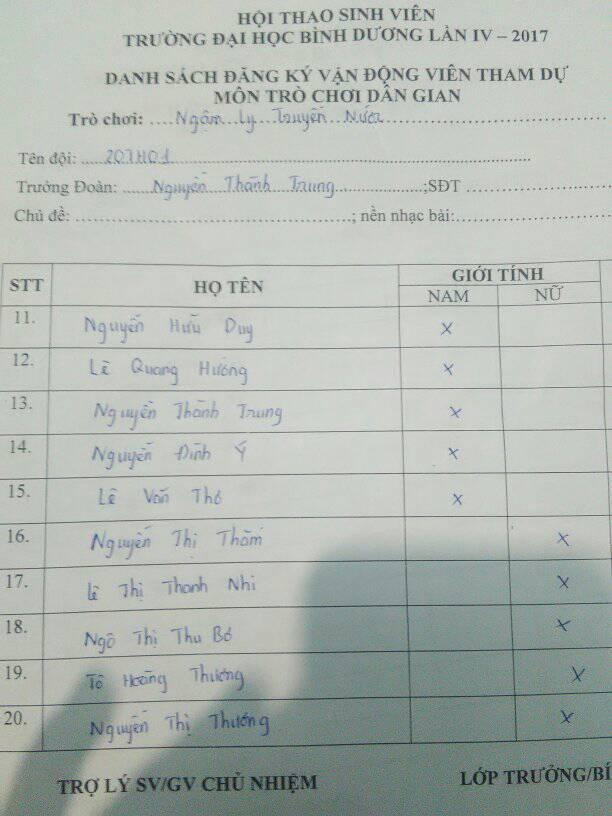 HỘI THAO SINH VIÊN
TRƯỜNG ĐẠI HỌC BÌNH DƯƠNG LẦN IV – 2017
DANH SÁCH ĐĂNG KÝ VẬN ĐỘNG VIÊN THAM DỰ
MÔN TRÒ CHƠI DÂN GIAN
Trò chơi: Ngậm Ly Truyền Nước
Tên đội: 207H01
Trưởng Đoàn: Nguyễn Thành Trung ;SĐT
Chủ đề: ; nền nhạc bài:
STT HỌ TÊN GIỚI TÍNH
NAM NỮ
11. Nguyễn Hữu Duy X
12. Lê Quang Hướng X
13. Nguyễn Thành Trung X
14. Nguyễn Đình Ý X
15. Lê Văn Thó X
16. Nguyễn Thị Thắm X
17. Lê Thị Thanh Nhi X
18. Ngô Thị Thu Bó X
19. Tô Hoàng Thương X
20. Nguyễn Thị Thương X
TRỢ LÝ SV/GV CHỦ NHIỆM LỚP TRƯỞNG/BÍ